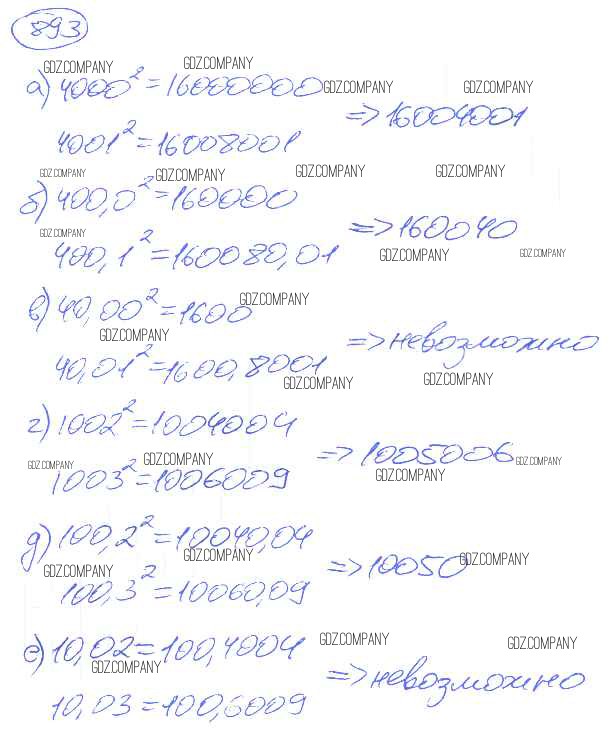 893
GDZ.COMPANY GDZ.COMPANY
а) 4000²=16000000 GDZ.COMPANY GDZ.COMPANY
=> 16004001
4001²=16008001
GDZ.COMPANY GDZ.COMPANY GDZ.COMPANY GDZ.COMPANY
б) 400,0²=160000
GDZ.COMPANY => 160040
400,1²=160080,01 GDZ.COMPANY GDZ.COMPANY
в) 40,00²=1600 GDZ.COMPANY
GDZ.COMPANY => невозможно
40,01²=1600,8001 GDZ.COMPANY GDZ.COMPANY
г) 1002²=1004004
GDZ.COMPANY GDZ.COMPANY => 1005006 GDZ.COMPANY
1003²=1006009 GDZ.COMPANY
д) 100,2²=10040,04
GDZ.COMPANY GDZ.COMPANY => 10050 GDZ.COMPANY
100,3²=10060,09
е) 10,02=100,4004 GDZ.COMPANY GDZ.COMPANY
GDZ.COMPANY => невозможно
10,03=100,6009